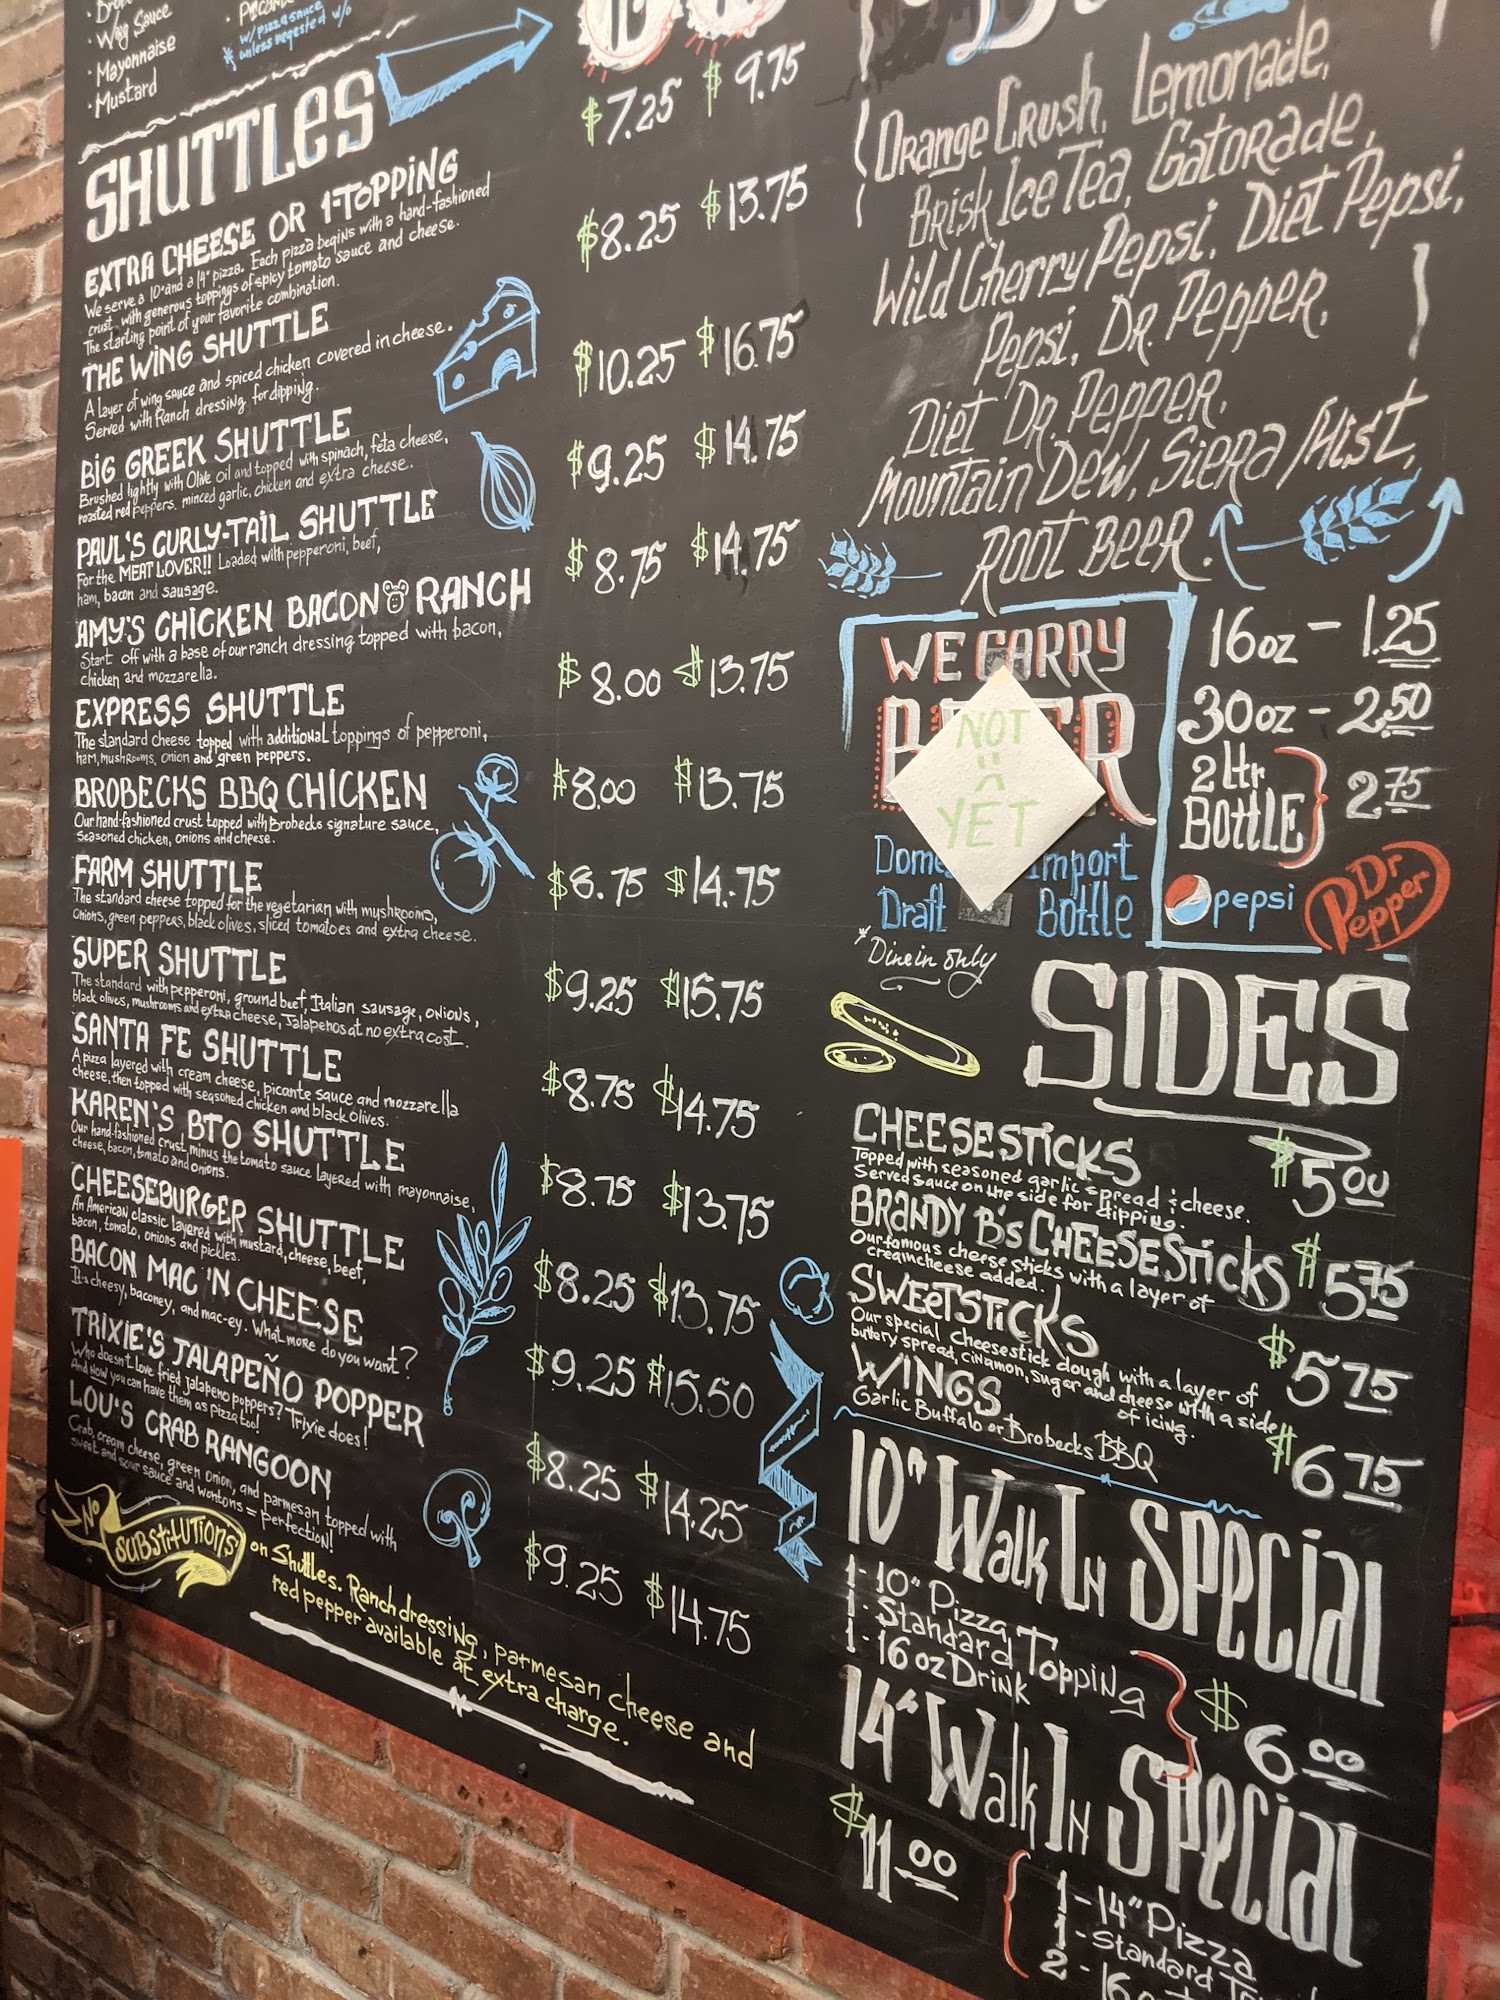 · Wing Sauce
· Mayonnaise
· Mustard
* w/ pizza sauce
unless reqested w/o
SHUTTLES
$7.25 $9.75
EXTRA CHEESE OR 1-TOPPING
We serve a 10" and a 14" pizza. Each pizza begins with a hand-fashioned
crust, with generous toppings of spicy tomato sauce and cheese.
The starting point of your favorite combination.
$8.25 $13.75
THE WING SHUTTLE
A layer of wing sauce and spiced chicken covered in cheese.
Served with Ranch dressing for dipping.
$10.25 $16.75
BIG GREEK SHUTTLE
Brushed lightly with Olive oil and topped with spinach, feta cheese,
roasted red peppers, minced garlic, chicken and extra cheese.
$9.25 $14.75
PAUL'S CURLY-TAIL SHUTTLE
For the MEAT LOVER!! Loaded with pepperoni, beef,
ham, bacon and sausage.
$8.75 $14.75
AMY'S CHICKEN BACON RANCH
Start off with a base of our ranch dressing topped with bacon,
chicken and mozzarella.
$8.00 $13.75
EXPRESS SHUTTLE
The standard cheese topped with additional toppings of pepperoni,
ham, mushrooms, onion and green peppers.
$8.00 $13.75
BROBECKS BBQ CHICKEN
Our hand-fashioned crust topped with Brobecks signature sauce,
seasoned chicken, onions and cheese.
$8.75 $14.75
FARM SHUTTLE
The standard cheese topped for the vegetarian with mushrooms,
onions, green peppers, black olives, sliced tomatoes and extra cheese.
$9.25 $15.75
SUPER SHUTTLE
The standard with pepperoni, ground beef, Italian sausage, onions,
black olives, mushrooms and extra cheese, Jalapenos at no extra cost.
$8.75 $14.75
SANTA FE SHUTTLE
A pizza layered with cream cheese, picante sauce and mozzarella
cheese, then topped with seasoned chicken and black olives.
$8.75 $13.75
KAREN'S BTO SHUTTLE
Our hand-fashioned crust minus the tomato sauce layered with mayonnaise,
cheese, bacon, tomato and onions.
$8.25 $13.75
CHEESEBURGER SHUTTLE
An American classic layered with mustard, cheese, beef,
bacon, tomato, onions and pickles.
$9.25 $15.50
BACON MAC 'N CHEESE
It's cheesy, baconey, and mac-ey. What more do you want?
$8.25 $14.25
TRIXIE'S JALAPEÑO POPPER
Who doesn't love fried jalapeno poppers? Trixie does!
And now you can have them as pizza too!
$9.25 $14.75
LOU'S CRAB RANGOON
Crab, cream cheese, green onion, and parmesan topped with
sweet and sour sauce and wontons = perfection!
No SUBSTITUTIONS on Shuttles. Ranch dressing, parmesan cheese and
red pepper available at extra charge.
Orange Crush, Lemonade,
Brisk Ice Tea, Gatorade,
Wild Cherry Pepsi, Diet Pepsi,
Pepsi, Dr. Pepper,
Diet Dr. Pepper,
Mountain Dew, Siera Mist,
Root Beer.
WE CARRY
BEER
NOT
YET
Import
Draft Bottle
* Dine in only
16oz - 1.25
30oz - 2.50
2 ltr
Bottle 2.75
pepsi
Dr.
Pepper
SIDES
CHEESESTICKS $5.00
Topped with seasoned garlic spread & cheese.
Served sauce on the side for dipping.
BRANDY B's CHEESESTICKS $5.75
Our famous cheese sticks with a layer of
creamcheese added.
SWEETSTICKS $5.75
Our special cheesestick dough with a layer of
buttery spread, cinamon, sugar and cheese with a side
of icing.
WINGS $6.75
Garlic Buffalo or Brobecks BBQ
10" Walk In Special
1-10" Pizza
1-Standard Topping
1-16oz Drink
$6.00
14" Walk In Special
$11.00
1-14" Pizza
1-Standard
2-16